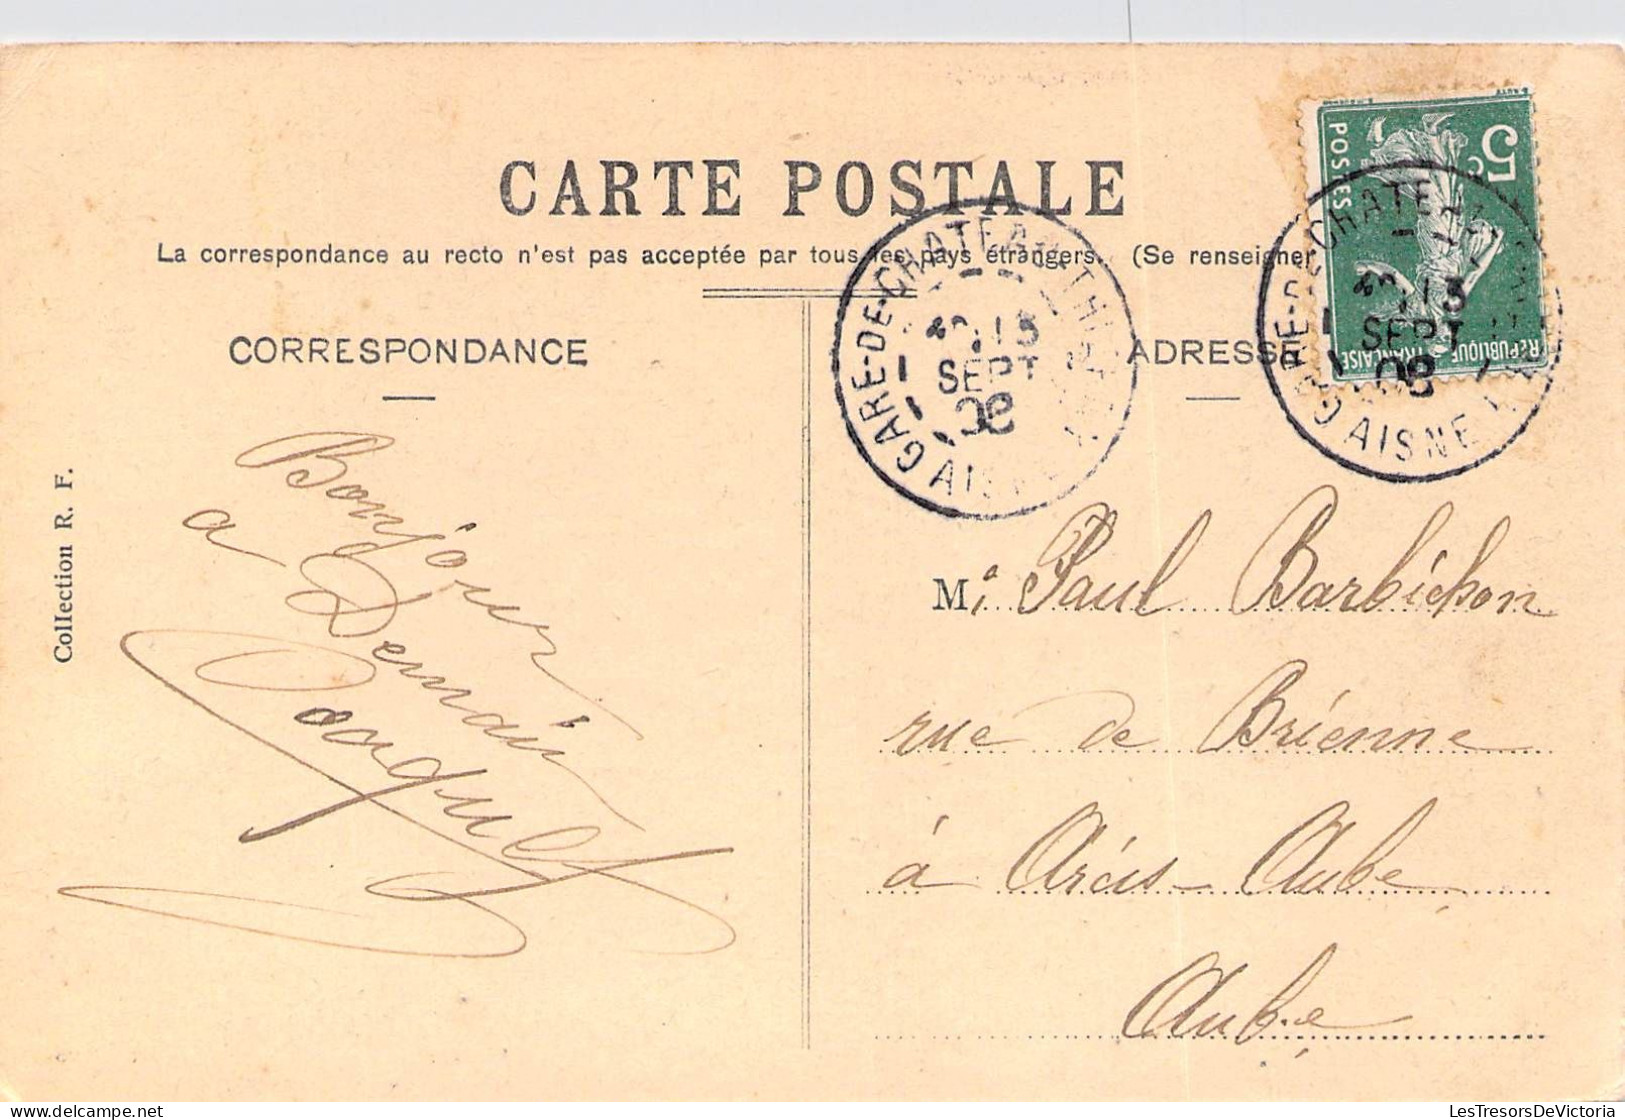 CARTE POSTALE
La correspondance au recto n'est pas acceptée par tous les pays étrangers. (Se renseigner
CORRESPONDANCE
ADRESSE
GARE-DE-CHATEAU-THIERRY
13
SEPT
08
AISNE
5c
POSTES
REPUBLIQUE
FRANÇAISE
GARE-DE-CHATEAU
13
SEPT
08
AISNE
Collection R. F.
Bonjour
a Demain
M. Paul Barbichon
rue de Brienne
à Arcis-Aube
Aube
LesTresorsDeVictoria